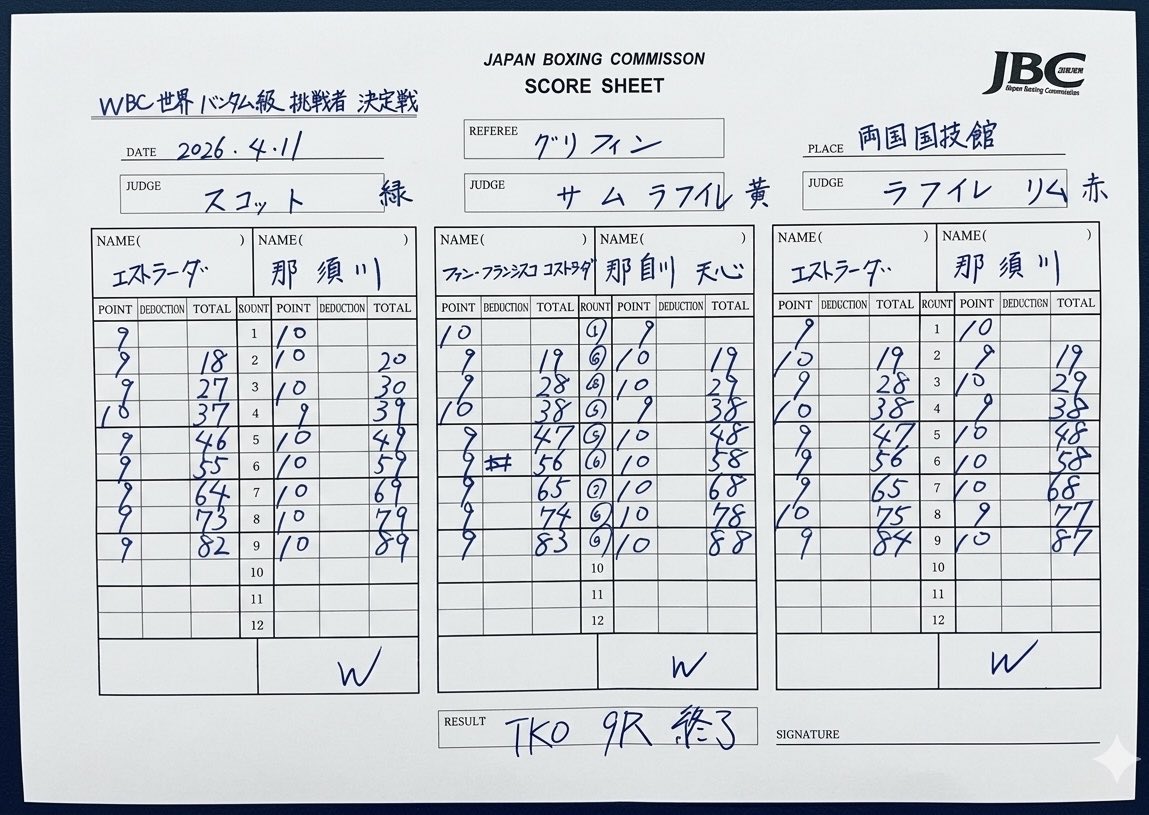 JAPAN BOXING COMMISSON
SCORE SHEET
JBC
Japan Boxing Commission
WBC世界 バンタム級 挑戦者 決定戦
DATE 2026.4.11
REFEREE グリフィン
PLACE 両国国技館
JUDGE スコット 緑
JUDGE サム ラフイレ 黄
JUDGE ラフイレ リム 赤
NAME( ) NAME( ) NAME( ) NAME( ) NAME( ) NAME( )
エストラーダ 那須川 ファン・フランシスコ コストラダ 那自川 天心 エストラーダ 那須川
POINT DEDUCTION TOTAL ROUNT POINT DEDUCTION TOTAL POINT DEDUCTION TOTAL ROUNT POINT DEDUCTION TOTAL POINT DEDUCTION TOTAL ROUNT POINT DEDUCTION TOTAL
9 1 10 10 1 9 9 1 10
9 18 2 10 20 9 19 10 19 10 19 2 9 19
9 27 3 10 30 9 28 10 29 9 28 3 10 29
10 37 4 9 39 10 38 9 38 10 38 4 9 38
9 46 5 10 49 9 47 10 48 9 47 5 10 48
9 55 6 10 59 9 56 10 58 9 56 6 10 58
9 64 7 10 69 9 65 10 68 9 65 7 10 68
9 73 8 10 79 9 74 10 78 10 75 8 9 77
9 82 9 10 89 9 83 10 88 9 84 9 10 87
10 10 10
11 11 11
12 12 12
W W W
RESULT TKO 9R 終了
SIGNATURE